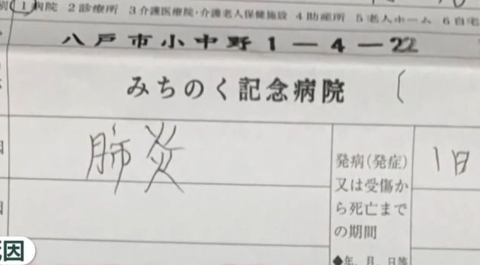 1 病院 2 診療所 3 介護医療院・介護老人保健施設 4 助産所 5 老人ホーム 6 自宅
八戸市小中野1-4-22
みちのく記念病院 (
肺炎
発病(発症)
又は受傷か
ら死亡まで
の期間
1日
◆年、月、日等
因